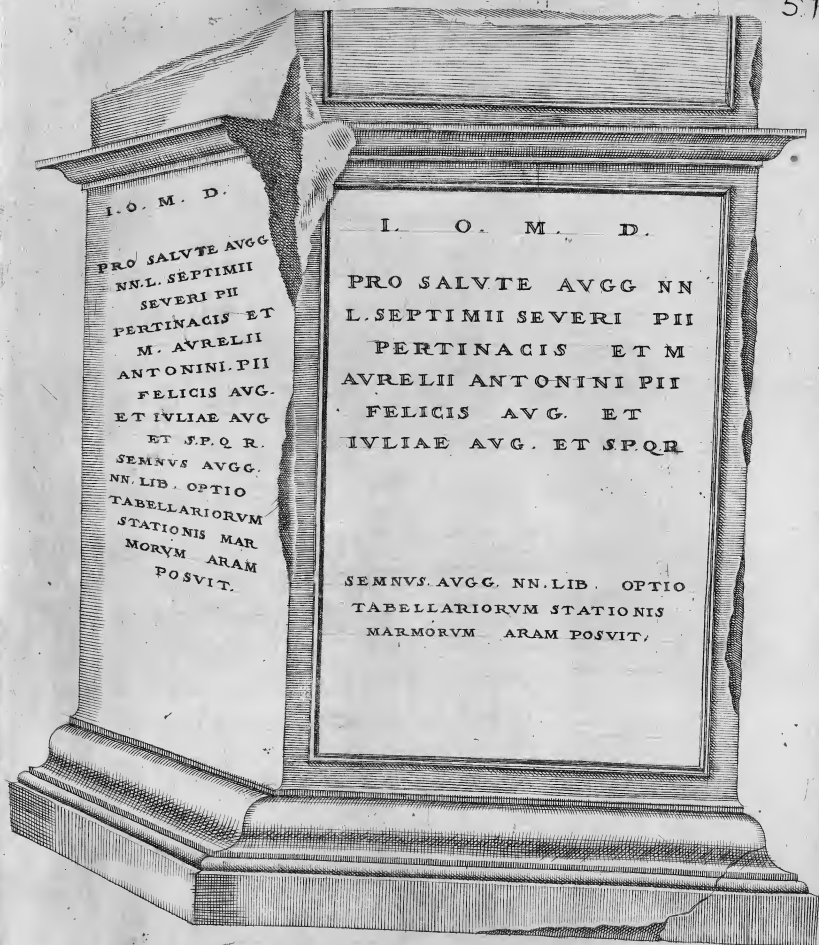 I. O. M. D.
PRO SALVTE AVGG
NN. L. SEPTIMII
SEVERI PII
PERTINACIS ET
M. AVRELII
ANTONINI. PII
FELICIS AVG.
ET IVLIAE AVG
ET S.P.Q R.
SEMNVS AVGG.
NN. LIB. OPTIO
TABELLARIORVM
STATIONIS MAR
MORVM ARAM
POSVIT.
I. O. M. D.
PRO SALVTE AVGG NN
L. SEPTIMII SEVERI PII
PERTINACIS ET M
AVRELII ANTONINI PII
FELICIS AVG. ET
IVLIAE AVG. ET S.P.QR
SEMNVS. AVGG. NN. LIB. OPTIO
TABELLARIORVM STATIONIS
MARMORVM ARAM POSVIT.